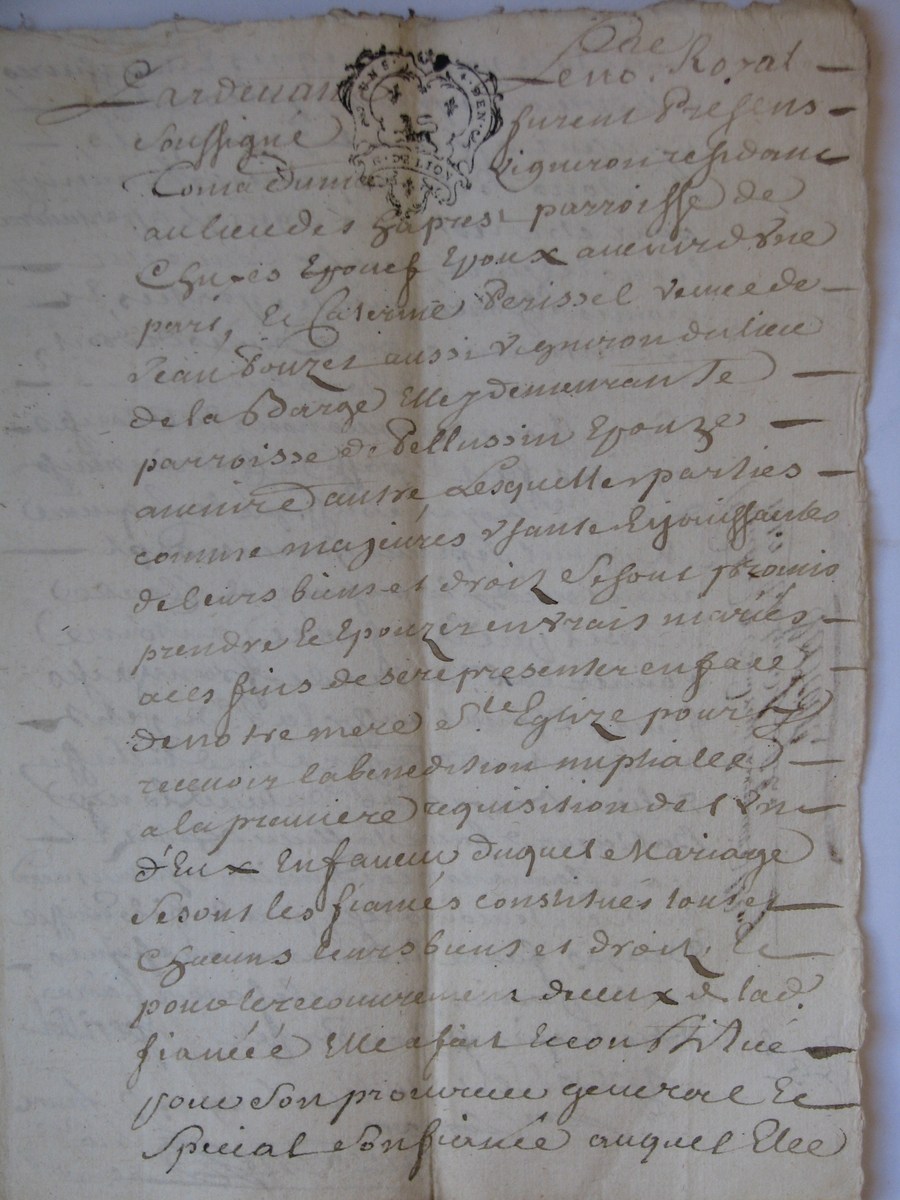 Pardevant Le no.re Royal
soussigné furent Presens
Coma dumas Vigneron residant
au lieu des parroisse de
Chuÿes Epoux auenir d'Vne
part, Et Caterine Perissel veuue de
Jean Pouzet aussi Vigneron du lieu
de la Barge Elle y demeurante
parroisse de Pellussin Epouze
auenire d'autre Lesquelles parties
comme majeures Vsants Et jouissantes
de leurs biens et droit, se sont promis
prendre Et Epouzer en vrais mariés
a ces fins de se representer en face
de notre mere Ste Eglize pour y
receuoir la benedition nuptialle
a la premiere requisition de l'Vn
d'Eux En faueur duquel Mariage
se sont les fiancés constitués tous et
chacuns leurs biens et droit, Et
pour le recouurement diceux de lad
fiancée Elle a fait Et constitué
pour son procureur general Et
special son fiancé auquel Elle